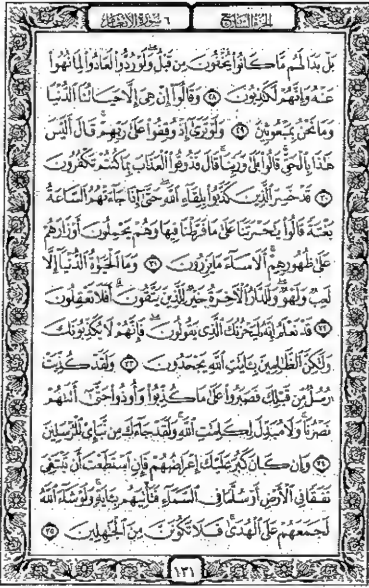 الجزء السابع ٦ سورة الأنعام
بَلْ بَدَا لَهُم مَّا كَانُوا۟ يُخْفُونَ مِن قَبْلُ ۖ وَلَوْ رُدُّوا۟ لَعَادُوا۟ لِمَا نُهُوا۟
عَنْهُ وَإِنَّهُمْ لَكَٰذِبُونَ ٢٨ وَقَالُوٓا۟ إِنْ هِىَ إِلَّا حَيَاتُنَا ٱلدُّنْيَا
وَمَا نَحْنُ بِمَبْعُوثِينَ ٢٩ وَلَوْ تَرَىٰٓ إِذْ وُقِفُوا۟ عَلَىٰ رَبِّهِمْ ۚ قَالَ أَلَيْسَ
هَٰذَا بِٱلْحَقِّ ۚ قَالُوا۟ بَلَىٰ وَرَبِّنَا ۚ قَالَ فَذُوقُوا۟ ٱلْعَذَابَ بِمَا كُنتُمْ تَكْفُرُونَ
٣٠ قَدْ خَسِرَ ٱلَّذِينَ كَذَّبُوا۟ بِلِقَآءِ ٱللَّهِ ۖ حَتَّىٰٓ إِذَا جَآءَتْهُمُ ٱلسَّاعَةُ
بَغْتَةً قَالُوا۟ يَٰحَسْرَتَنَا عَلَىٰ مَا فَرَّطْنَا فِيهَا وَهُمْ يَحْمِلُونَ أَوْزَارَهُمْ
عَلَىٰ ظُهُورِهِمْ ۚ أَلَا سَآءَ مَا يَزِرُونَ ٣١ وَمَا ٱلْحَيَوٰةُ ٱلدُّنْيَآ إِلَّا
لَعِبٌ وَلَهْوٌ ۖ وَلَلدَّارُ ٱلْءَاخِرَةُ خَيْرٌ لِّلَّذِينَ يَتَّقُونَ ۗ أَفَلَا تَعْقِلُونَ
٣٢ قَدْ نَعْلَمُ إِنَّهُۥ لَيَحْزُنُكَ ٱلَّذِى يَقُولُونَ ۖ فَإِنَّهُمْ لَا يُكَذِّبُونَكَ
وَلَٰكِنَّ ٱلظَّٰلِمِينَ بِـَٔايَٰتِ ٱللَّهِ يَجْحَدُونَ ٣٣ وَلَقَدْ كُذِّبَتْ
رُسُلٌ مِّن قَبْلِكَ فَصَبَرُوا۟ عَلَىٰ مَا كُذِّبُوا۟ وَأُوذُوا۟ حَتَّىٰٓ أَتَىٰهُمْ
نَصْرُنَا ۚ وَلَا مُبَدِّلَ لِكَلِمَٰتِ ٱللَّهِ ۚ وَلَقَدْ جَآءَكَ مِن نَّبَإِى۟ ٱلْمُرْسَلِينَ
٣٤ وَإِن كَانَ كَبُرَ عَلَيْكَ إِعْرَاضُهُمْ فَإِنِ ٱسْتَطَعْتَ أَن تَبْتَغِىَ
نَفَقًا فِى ٱلْأَرْضِ أَوْ سُلَّمًا فِى ٱلسَّمَآءِ فَتَأْتِيَهُم بِـَٔايَةٍ ۚ وَلَوْ شَآءَ ٱللَّهُ
لَجَمَعَهُمْ عَلَى ٱلْهُدَىٰ ۚ فَلَا تَكُونَنَّ مِنَ ٱلْجَٰهِلِينَ ٣٥
١٣١